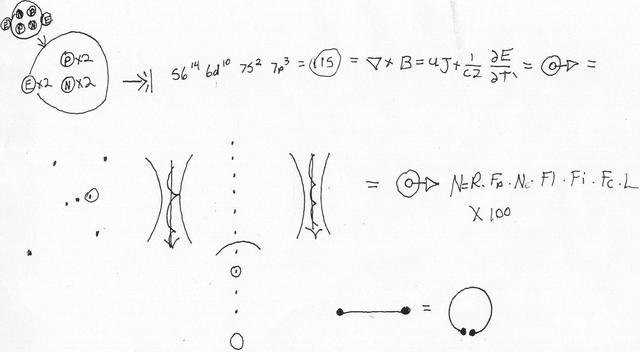 N P
E E
P N
P x2
E x2 N x2
5f¹⁴ 6d¹⁰ 7s² 7p³ = 115 = ∇ × B = uJ + 1/c2 ∂E/∂t = =
= N=R·Fp·Ne·Fl·Fi·Fc·L
X 100
=